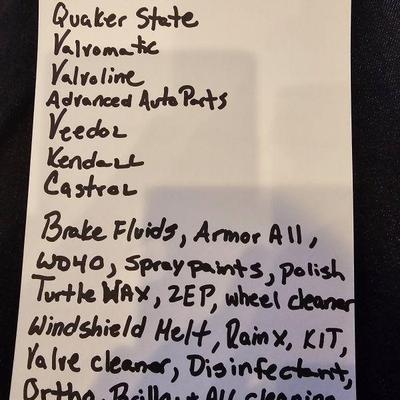 Quaker State
Valvomatic
Valvoline
Advanced Auto Parts
Veedol
Kendall
Castrol
Brake Fluids, Armor All,
WD40, Spray paints, polish
Turtle WAX, ZEP, wheel cleaner
Windshield Melt, Rainx, KIT,
Valve cleaner, Disinfectant,
Ortho, All cleaning